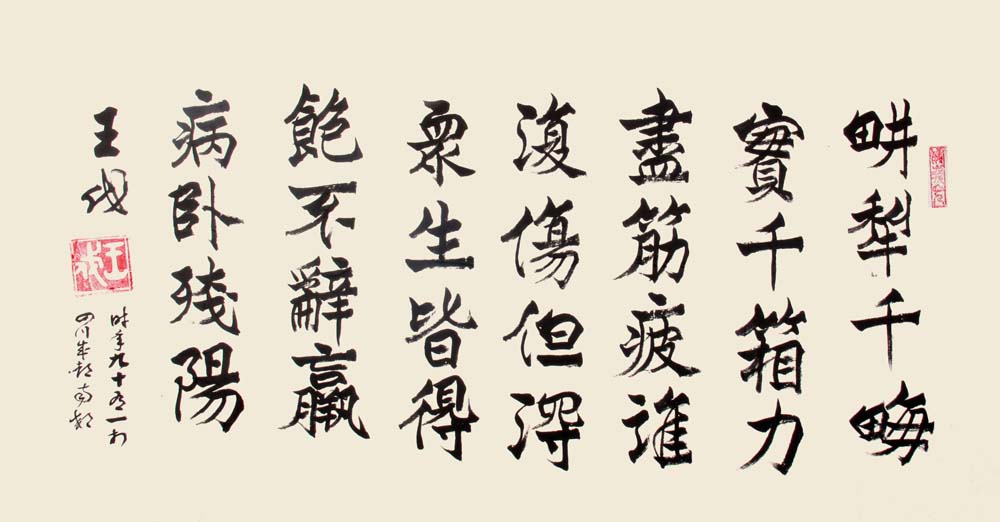 畊犂千畮
實千箱力
盡筋疲誰
復傷但得
眾生皆得
飽不辭羸
病臥殘陽
王
時年九十有一於
四川成都南郊